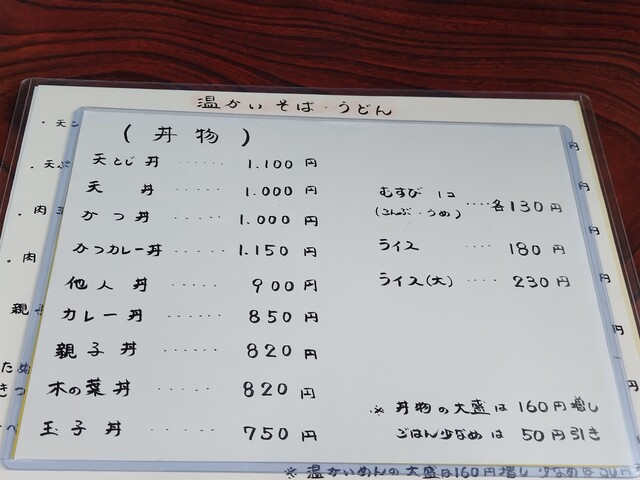 温かいそば・うどん
(丼物)
天とじ丼 ······ 1.100円
天 丼 ······ 1.000円
かつ丼 ······ 1.000円
かつカレー丼 ····· 1.150円
他人丼 ······ 900円
カレー丼 ······ 850円
親子丼 ······ 820円
木の葉丼 ······ 820円
玉子丼 ······ 750円
むすび 1コ ····各130円
(こんぶ・うめ)
ライス ···· 180円
ライス(大) ···· 230円
※ 丼物の大盛は160円増し
ごはん少なめは 50円引き
・天
・天ぷ
・肉
・肉
親
たぬ
きつ
※ 温かいめんの大盛は160円増し 少なめは50円